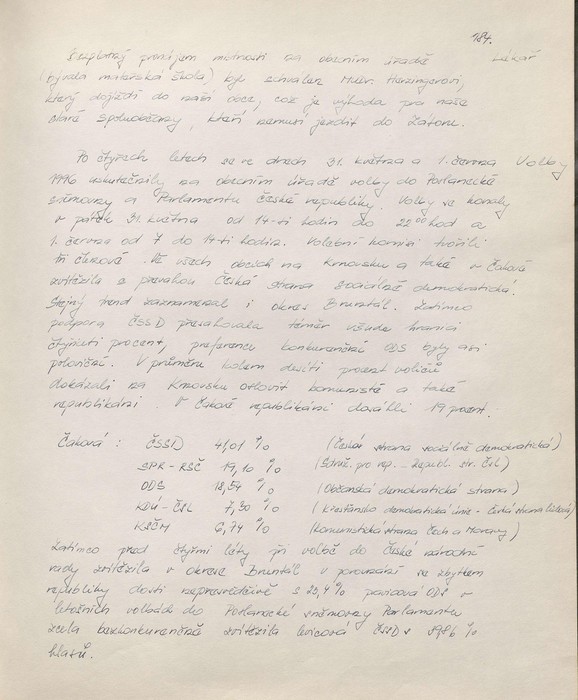 184.
Bezplatný pronájem místnosti na obecním úřadě Lékař
(bývalá mateřská škola) byl schválen MUDr. Herzingerovi,
který dojíždí do naší obce, což je výhoda pro naše
staré spoluobčany, kteří nemusí jezdit do Zátoru.
Po čtyřech letech se ve dnech 31. května a 1. června Volby
1996 uskutečnily na obecním úřadě volby do Poslanecké
sněmovny a Parlamentu České republiky. Volby se konaly
v pátek 31. května od 14-ti hodin do 22 00 hod a
1. června od 7 do 14-ti hodin. Volební komisi tvořili
tři členové. Ve všech obcích na Krnovsku a také v Čakové
zvítězila s převahou Česká strana sociálně demokratická.
Stejný trend zaznamenal i okres Bruntál. Zatímco
podpora ČSSD přesahovala téměř všude hranici
čtyřiceti procent, preference konkurenční ODS byly asi
poloviční. V průměru kolem deseti procent voličů
dokázali na Krnovsku oslovit komunisté a také
republikáni. V Čakové republikáni dosáhli 19 procent.
Čaková : ČSSD 41,01 % (Česká strana sociálně demokratická)
SPR - RSČ 19,10 % (Sdruž. pro rep. - Republ. str. Čsl)
ODS 18,54 % (Občanská demokratická strana)
KDU - ČSL 7,30 % (Křesťansko demokratická unie - Česká strana lidová)
KSČM 6,74 % (Komunistická strana Čech a Moravy)
Zatímco před čtyřmi léty při volbě do České národní
rady zvítězila v okrese Bruntál v porovnání se zbytkem
republiky dosti nepřesvědčivě s 23,4 % pravicová ODS v
letošních volbách do Poslanecké sněmovny Parlamentu
zcela bezkonkurenčně zvítězila levicová ČSSD s %
hlasů.